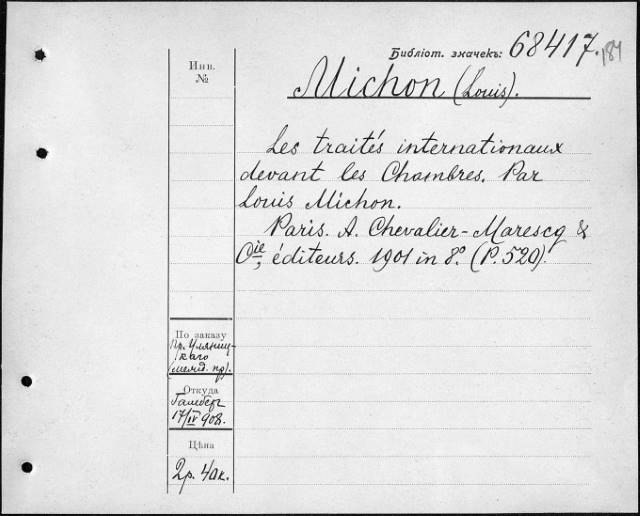 Библіот. значекъ: 68417.
Инв. №
Michon (Louis).
Les traités internationaux
devant les Chambres. Par
Louis Michon.
Paris. A. Chevalier-Marescq &
Cie, éditeurs. 1901 in 8º. (P. 520).
По заказу
Пр. Уляниц-
каго
(межд. пр).
Откуда
17/IV 908.
Цѣна
2р. 40к.